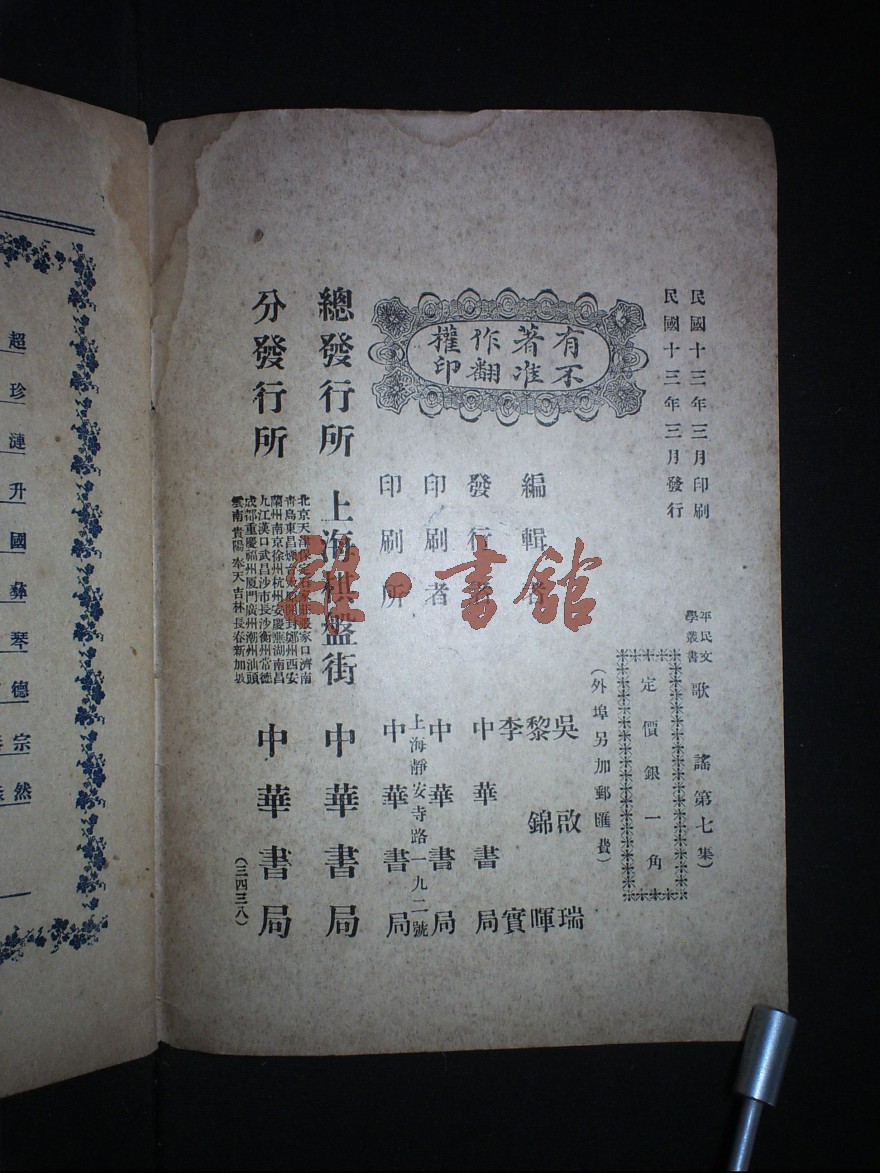 民國十三年三月印刷
民國十三年三月發行
平民文學叢書 歌謠第七集)
定價銀一角
(外埠另加郵匯費)
有著作權
不准翻印
編輯者 吳啟瑞
黎錦暉
李實
發行者 中華書局
印刷者 中華書局
上海靜安寺路一九二號
印刷所 中華書局
總發行所 上海棋盤街 中華書局
分發行所 中華書局
北京天津保定石家莊張家口濟南
青島東昌 開封鄭州西安
蘭州南京徐州杭州安慶蕪湖南昌
九江漢口武昌沙市長沙衡州常德
成都重慶福州厦門廣州潮州汕頭
雲南貴陽奉天吉林長春新加坡
(三四三八)
書館
超
珍
漣
升
國
彝
琴
德
宗
然